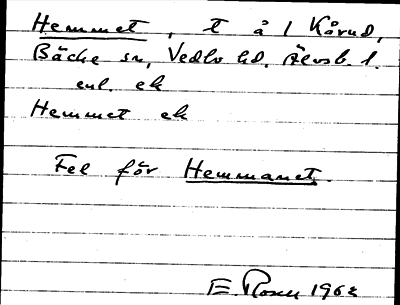 Hemmet, t å 1 Kårud,
Bäcke sn, Vedbo hd, Älvsb. l.
enl. ek
Hemmet ek
Fel för Hemmanet.
E. Rosen 1962